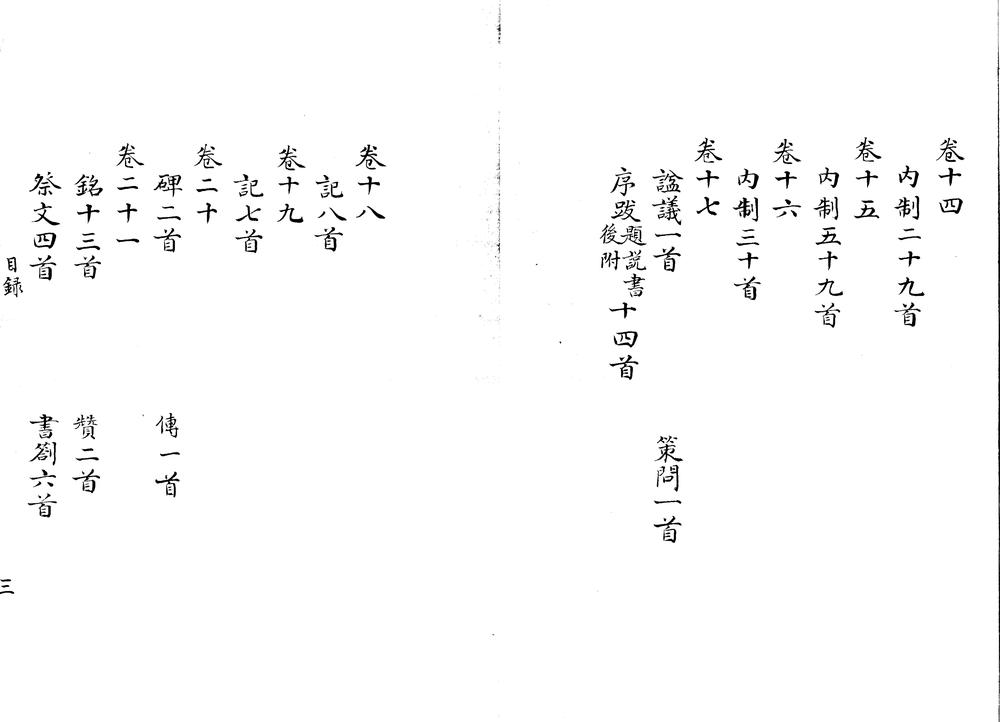 卷十四
内制二十九首
卷十五
内制五十九首
卷十六
内制三十首
卷十七
諡議一首 策問一首
序跋題説書後附十四首
卷十八
記八首
卷十九
記七首
卷二十
碑二首 傳一首
卷二十一
銘十三首 贊二首
祭文四首 書劄六首
目録
三